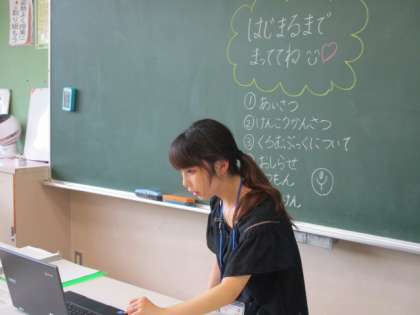 はじまるまで
まっててね
①あいさつ
②けんこうかんさつ
③くろむぶっくについて
おしらせ